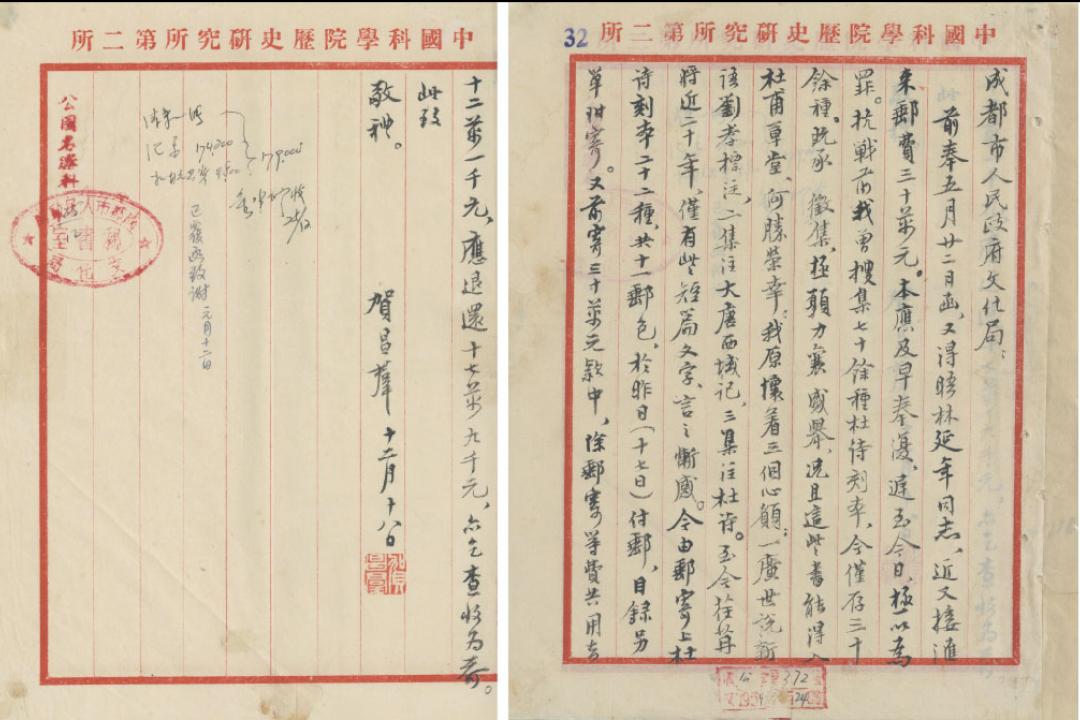 中國科學院歷史研究所第二所
32
成都市人民政府文化局:
前奉五月廿二日函,又得晤林延年同志,近又接滙
來郵費三十萬元。本應及早奉復,遲至今日,極以為
罪。抗戰前我曾搜集七十餘種杜诗刻本,今僅存三十
餘種。既承 徵集,極願力襄 盛舉,况且這些書能得入
杜甫草堂,何勝榮幸。我原懷着三個心願:一廣世說新
语劉孝標注,二集注大唐西域记,三集注杜诗。至今荏苒
將近二十年,僅有些短篇文字,言之慚感。今由郵寄上杜
诗刻本二十二種,共十一郵包,於昨日(十七日)付郵,目錄另
單附寄。又前寄三十萬元款中,除郵寄等費共用去
中國科學院歷史研究所第二所
十二萬一千元,應退還十七萬九千元,亦乞查收為荷。
此致
敬禮。
賀昌羣 十二月十八日
174,000
179,000
已覆函致謝 元月十二日
公園名勝科